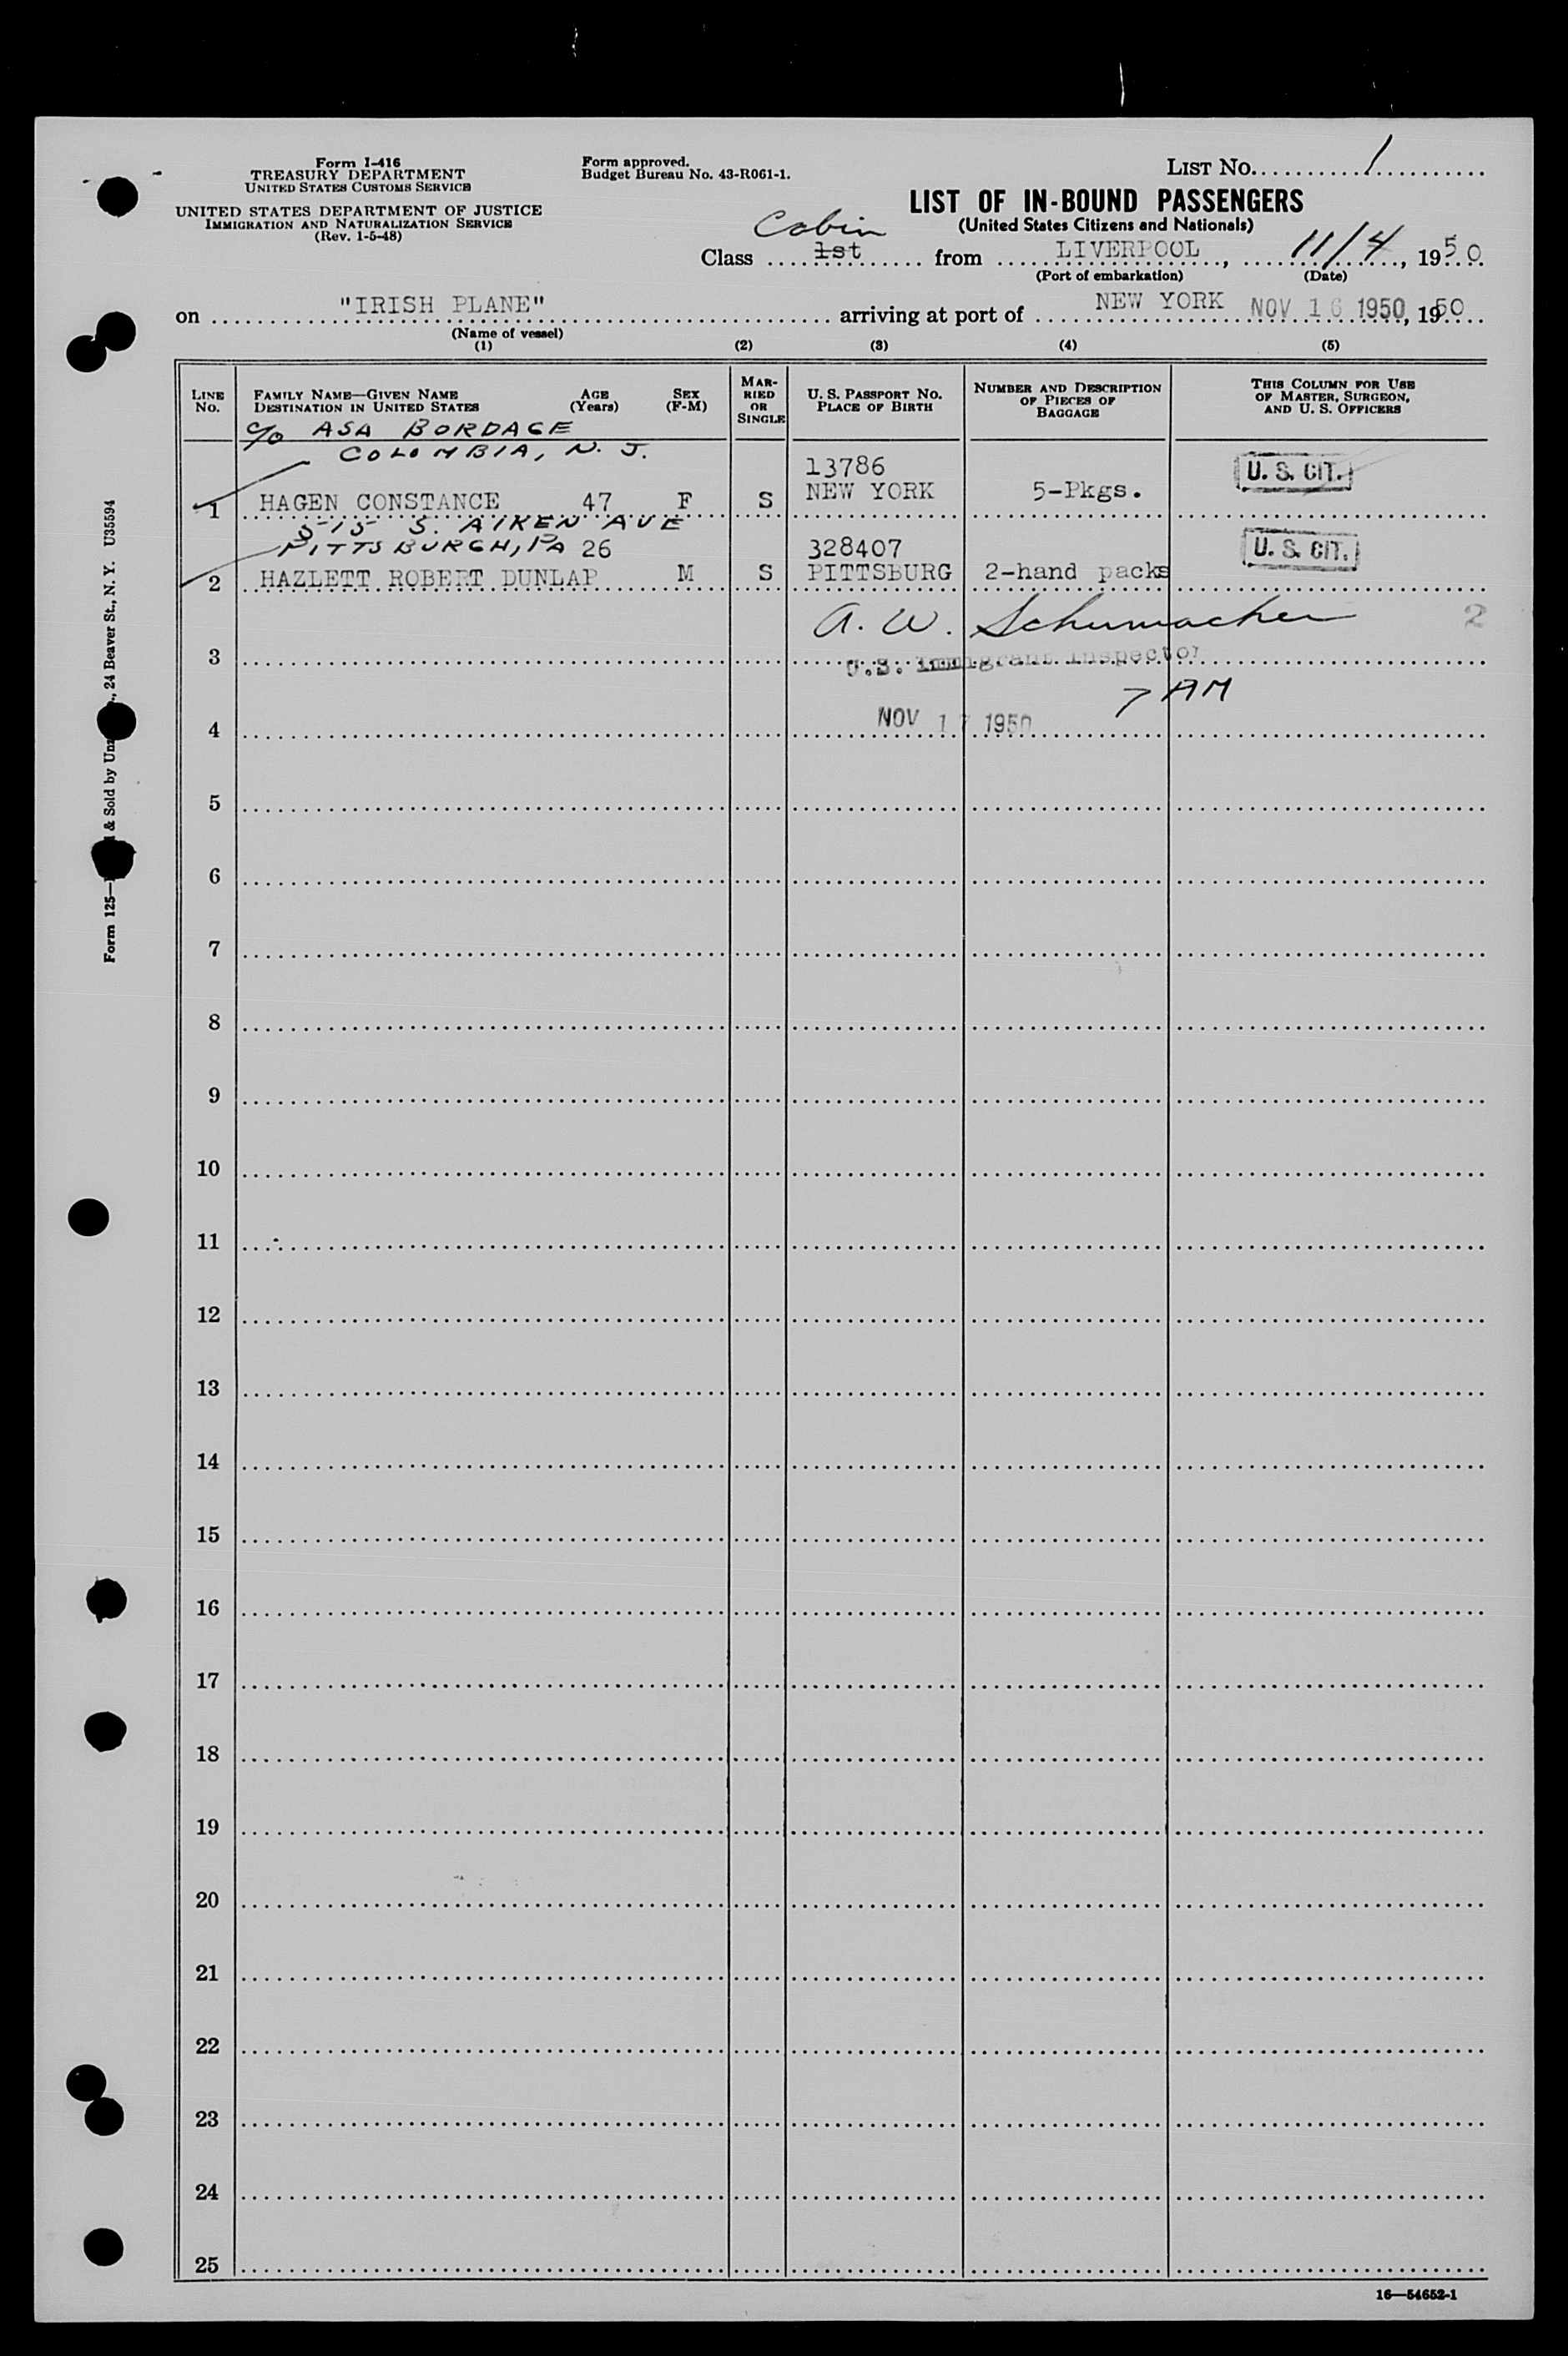 Form I-416
TREASURY DEPARTMENT
UNITED STATES CUSTOMS SERVICE
UNITED STATES DEPARTMENT OF JUSTICE
IMMIGRATION AND NATURALIZATION SERVICE
(Rev. 1-5-48)
Form approved.
Budget Bureau No. 43-R061-1.
LIST No. 1
LIST OF IN-BOUND PASSENGERS
(United States Citizens and Nationals)
Cabin
Class 1st from LIVERPOOL, 11/4, 1950
(Port of embarkation) (Date)
on "IRISH PLANE" arriving at port of NEW YORK NOV 16 1950, 1950
(Name of vessel)
(1) (2) (3) (4) (5)
LINE No.
FAMILY NAME—GIVEN NAME
DESTINATION IN UNITED STATES
AGE (Years)
SEX (F-M)
MARRIED OR SINGLE
U. S. PASSPORT NO.
PLACE OF BIRTH
NUMBER AND DESCRIPTION OF PIECES OF BAGGAGE
THIS COLUMN FOR USE OF MASTER, SURGEON, AND U. S. OFFICERS
c/o ASA BORDAGE
COLOMBIA, N. J.
13786 U. S. CIT.
1 HAGEN CONSTANCE 47 F S NEW YORK 5-Pkgs.
515 S. AIKEN AVE
PITTSBURGH, PA 26 328407 U. S. CIT.
2 HAZLETT ROBERT DUNLAP M S PITTSBURG 2-hand packs
A. W. Schumacher 2
3 U.S. Immigrant Inspector
7 AM
4 NOV 17 1950
5
6
7
8
9
10
11
12
13
14
15
16
17
18
19
20
21
22
23
24
25
16—54652-1
Form 125— & Sold by Unz ., 24 Beaver St., N. Y. U35594